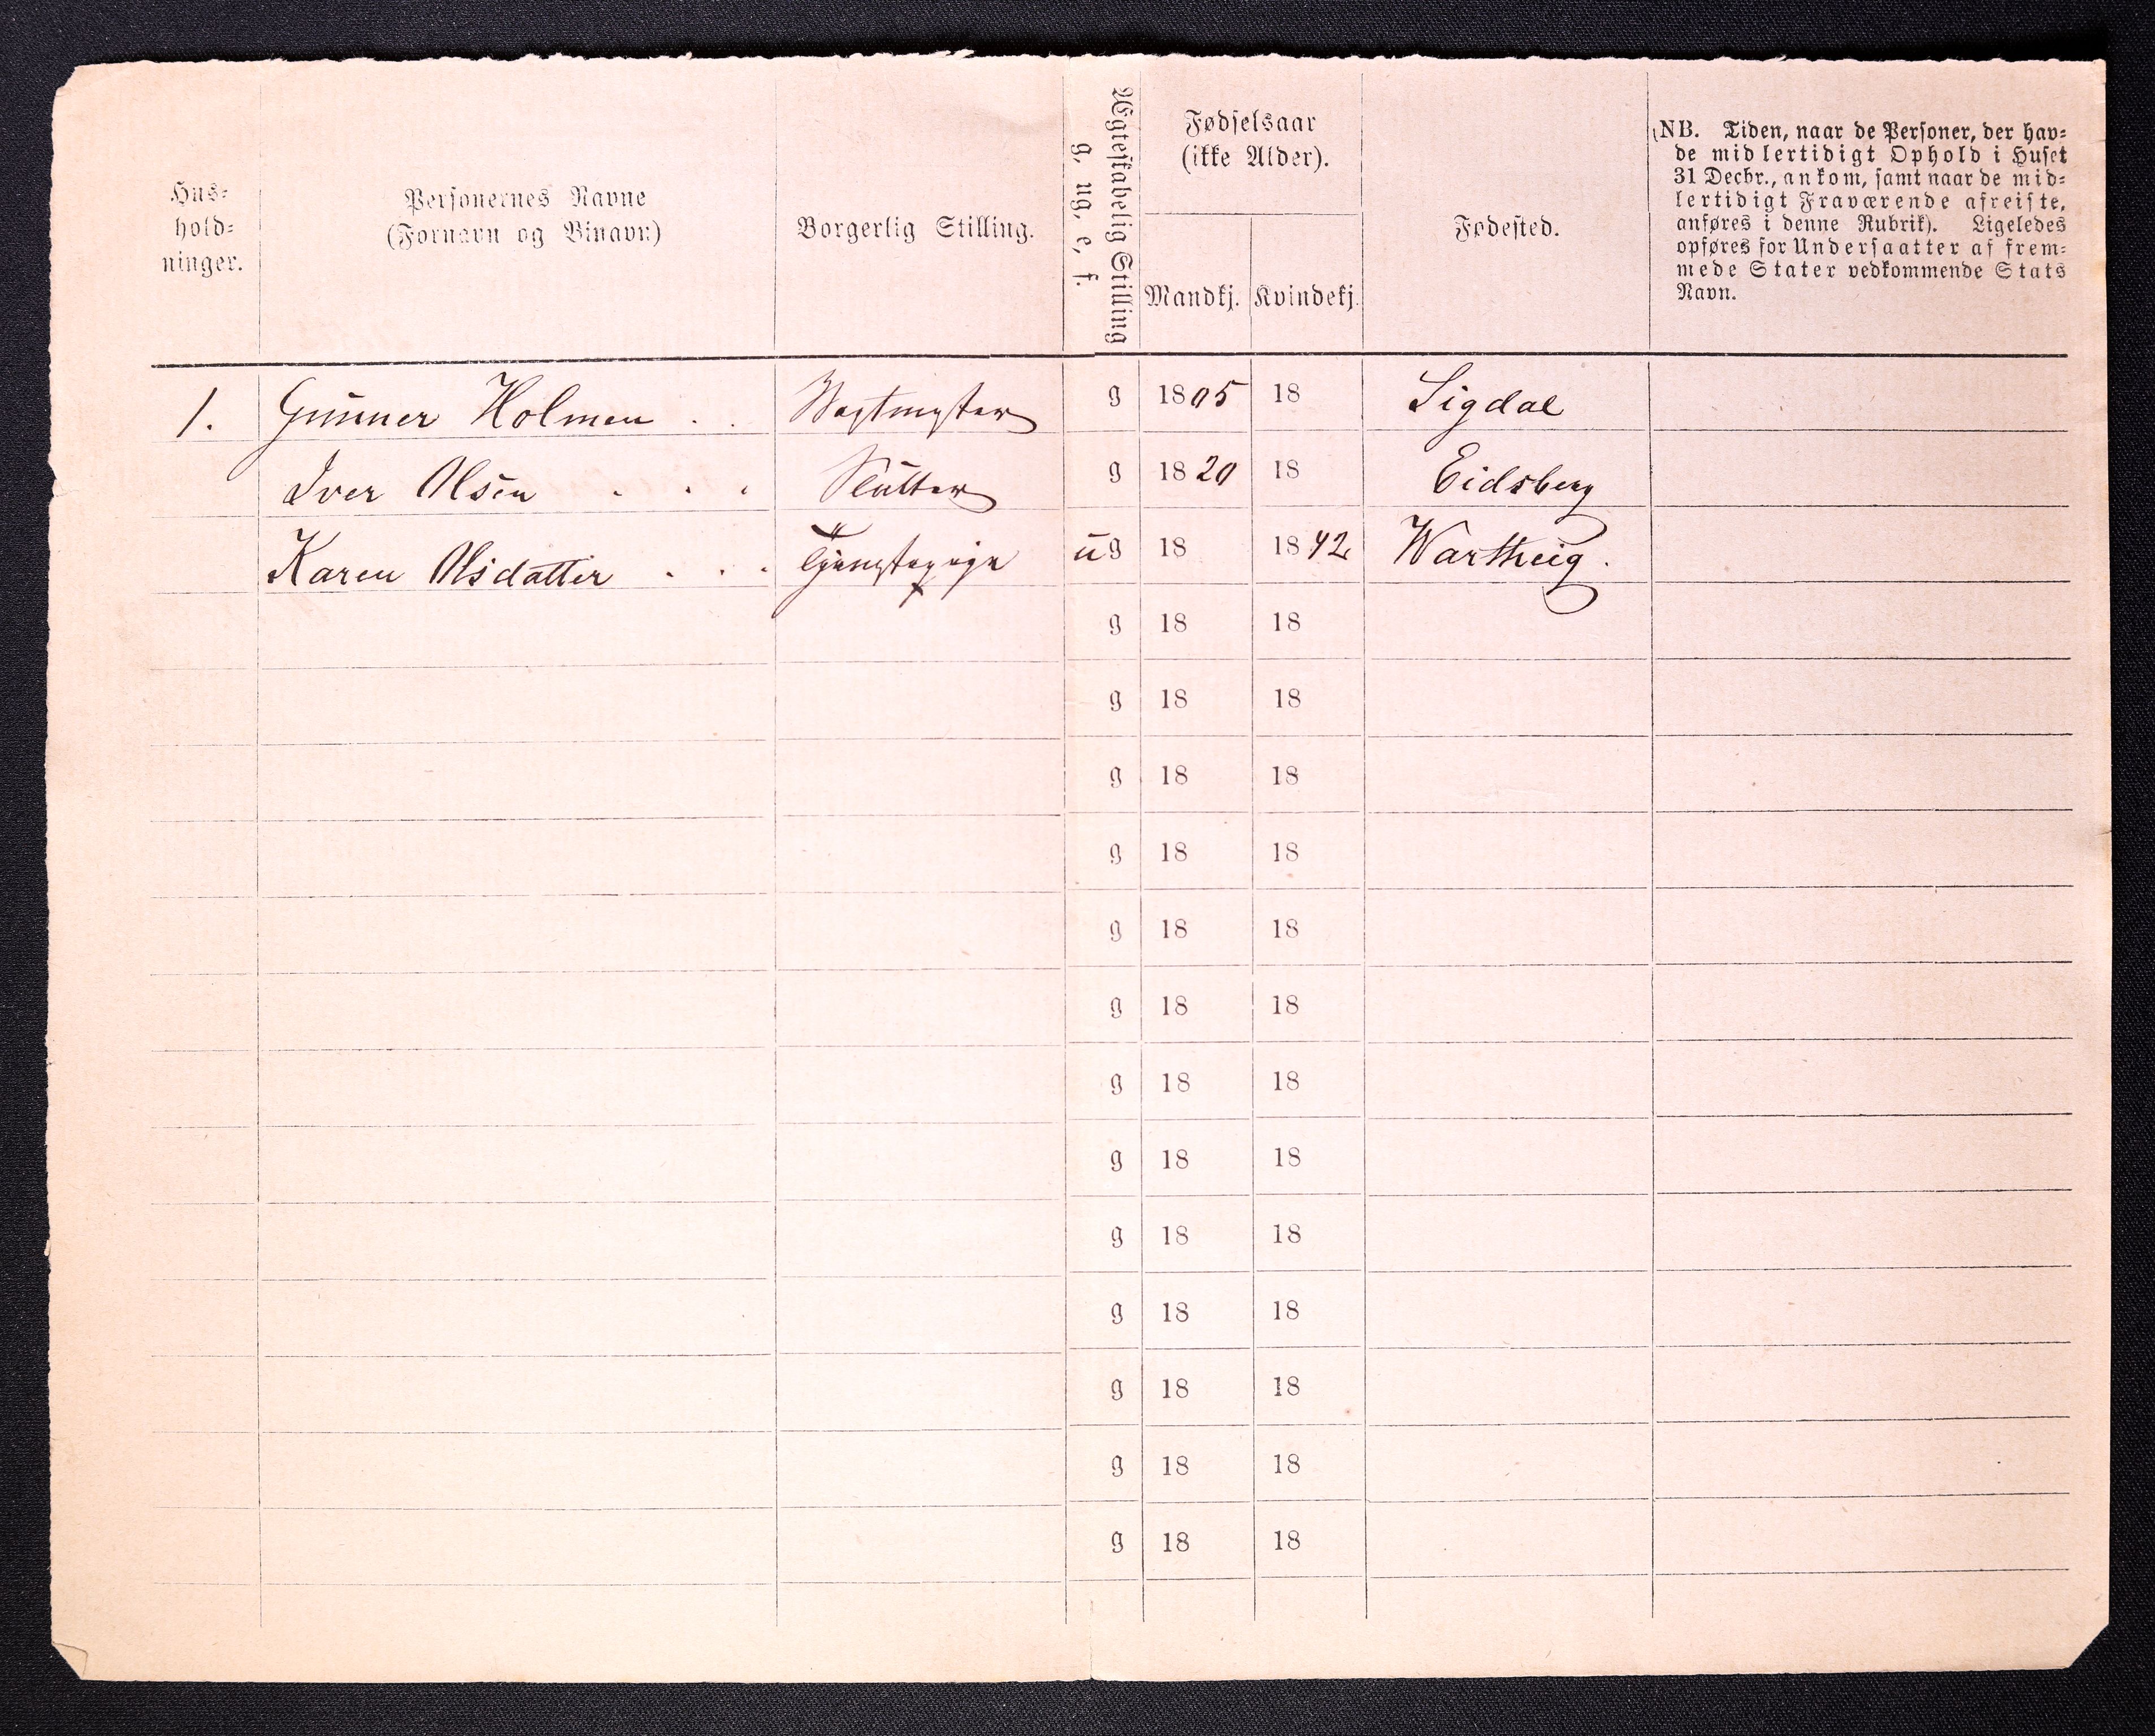 Hus-
hold-
ninger.
Personernes Navne
(Fornavn og Binavn)
Borgerlig Stilling.
Ægteskabelig Stilling
g, ug, e, f.
Fødselsaar
(ikke Alder).
Mandkj. Kvindekj.
Fødested.
(NB. Tiden, naar de Personer, der hav-
de midlertidigt Ophold i Huset
31 Decbr., ankom, samt naar de mid-
lertidigt Fraværende afreiste,
anføres i denne Rubrik). Ligeledes
opføres for Undersaatter af frem-
mede Stater vedkommende Stats
Navn.
1. Gunner Holmen . . Vagtmester g 1805 18 Sigdal
Iver Olsen . . . Slutter g 1820 18 Eidsberg
Karen Olsdatter . . . Tjenestepige ug 18 1842 Wartheig.
g 18 18
g 18 18
g 18 18
g 18 18
g 18 18
g 18 18
g 18 18
g 18 18
g 18 18
g 18 18
g 18 18
g 18 18
g 18 18